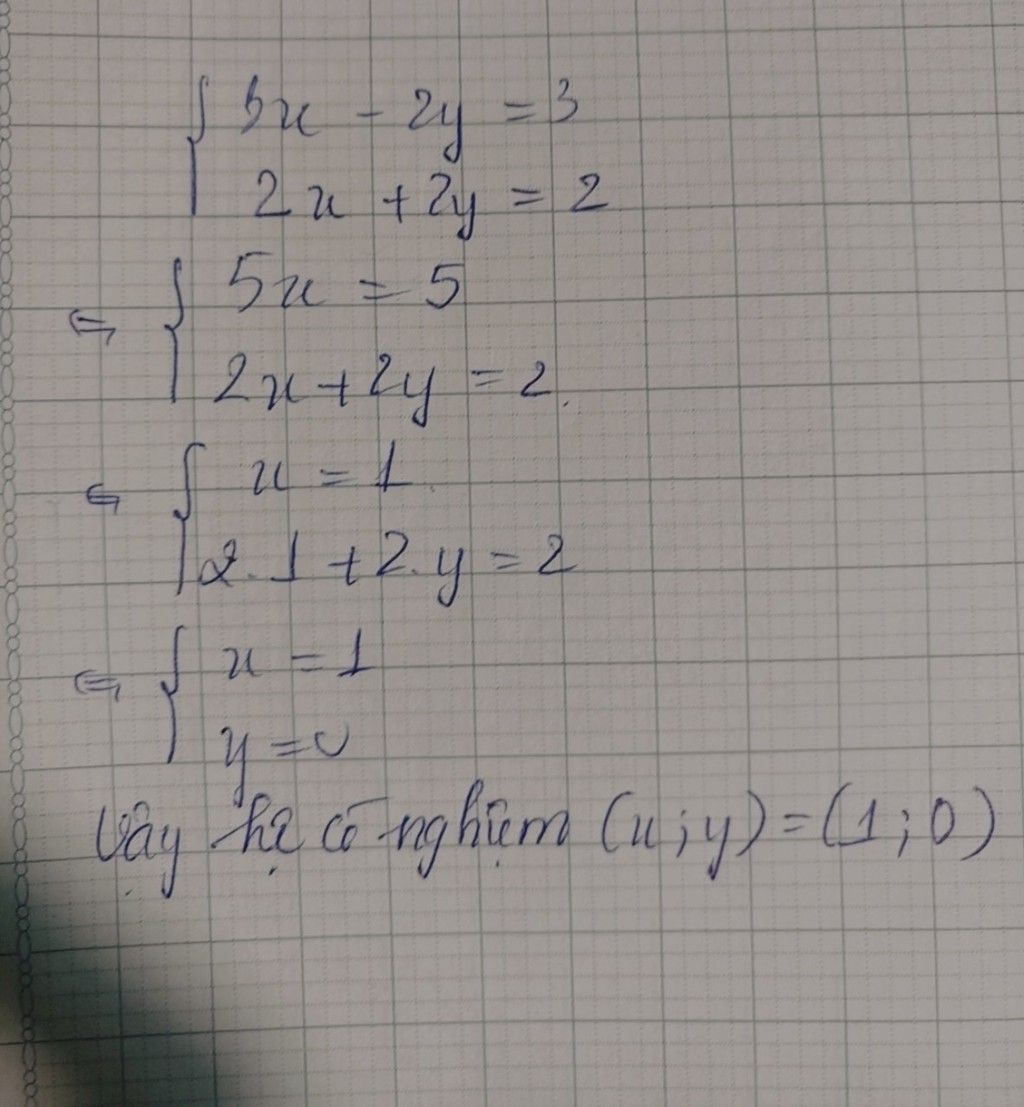 { 3x - 2y = 3
2x + 2y = 2
⇔ { 5x = 5
2x + 2y = 2.
⇔ { x = 1
2.1 + 2.y = 2
⇔ { x = 1
y = 0
Vậy hệ có nghiệm (x;y) = (1;0)